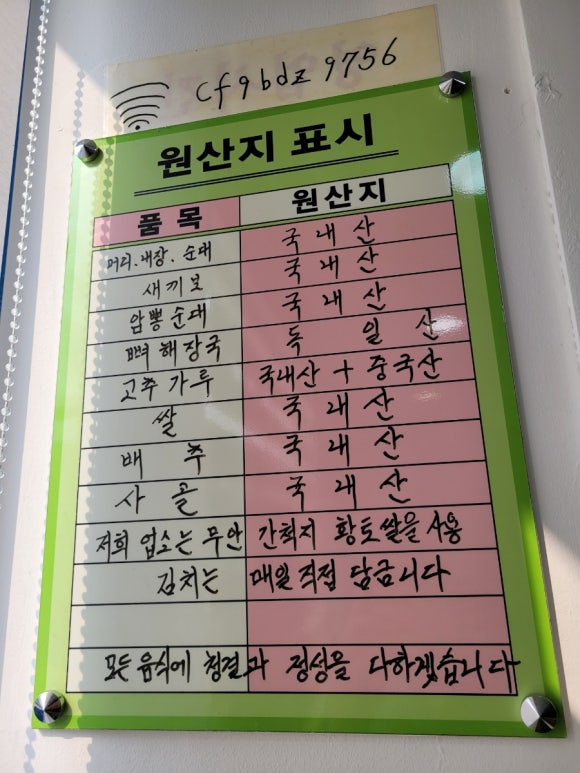 cf9bdz9756
원산지 표시
품목 원산지
머리.내장.순대 국내산
새끼보 국내산
암뽕순대 국내산
뼈해장국 독일산
고추가루 국내산 + 중국산
쌀 국내산
배추 국내산
사골 국내산
저희 업소는 무안 간척지 황토쌀을 사용
김치는 매일 직접 담급니다
모든 음식에 청결과 정성을 다하겠습니다